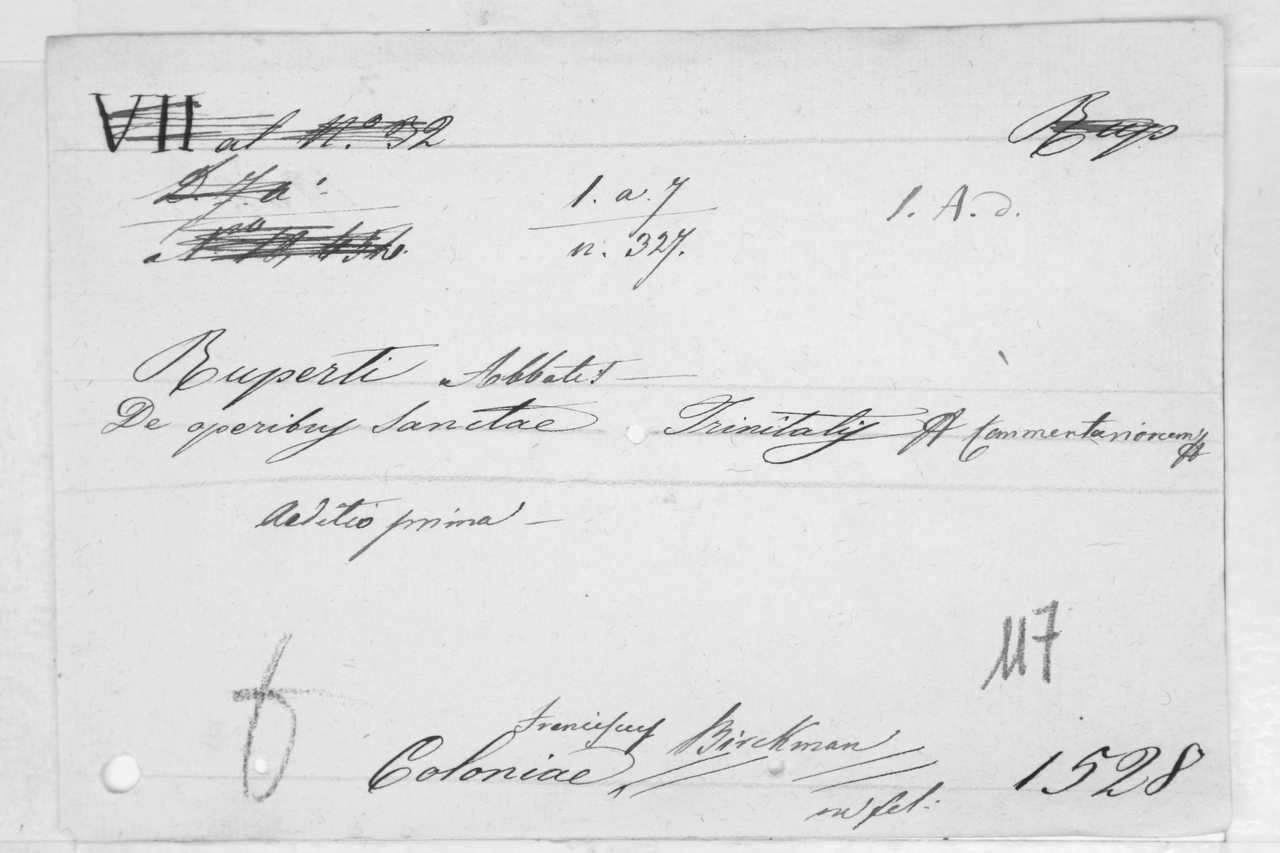 VII al N.o 32 Rup
D. 7. a 1. a. 7 1. A. d.
n. 327.
Ruperti Abbatis —
De operibus Sanctae Trinitatis Commentariorum
Aeditio prima —
117
Franciscus Birckman
Coloniae 1528
in fol: